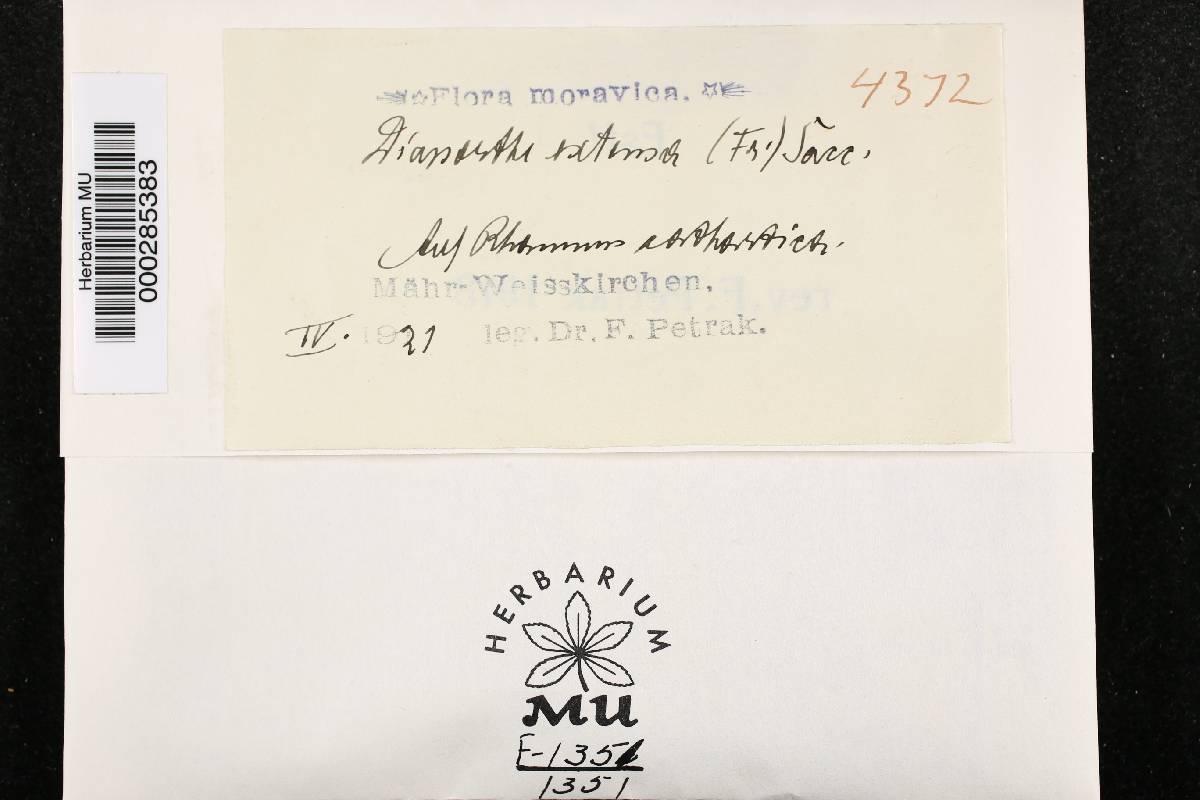 Herbarium MU
000285383
Flora moravica.
4372
Diaporthe extensa (Fr.) Sacc.
Auf Rhamnus cathartica.
Mähr-Weisskirchen,
IV. 1921 leg. Dr. F. Petrak.
HERBARIUM
MU
F-1351
1351